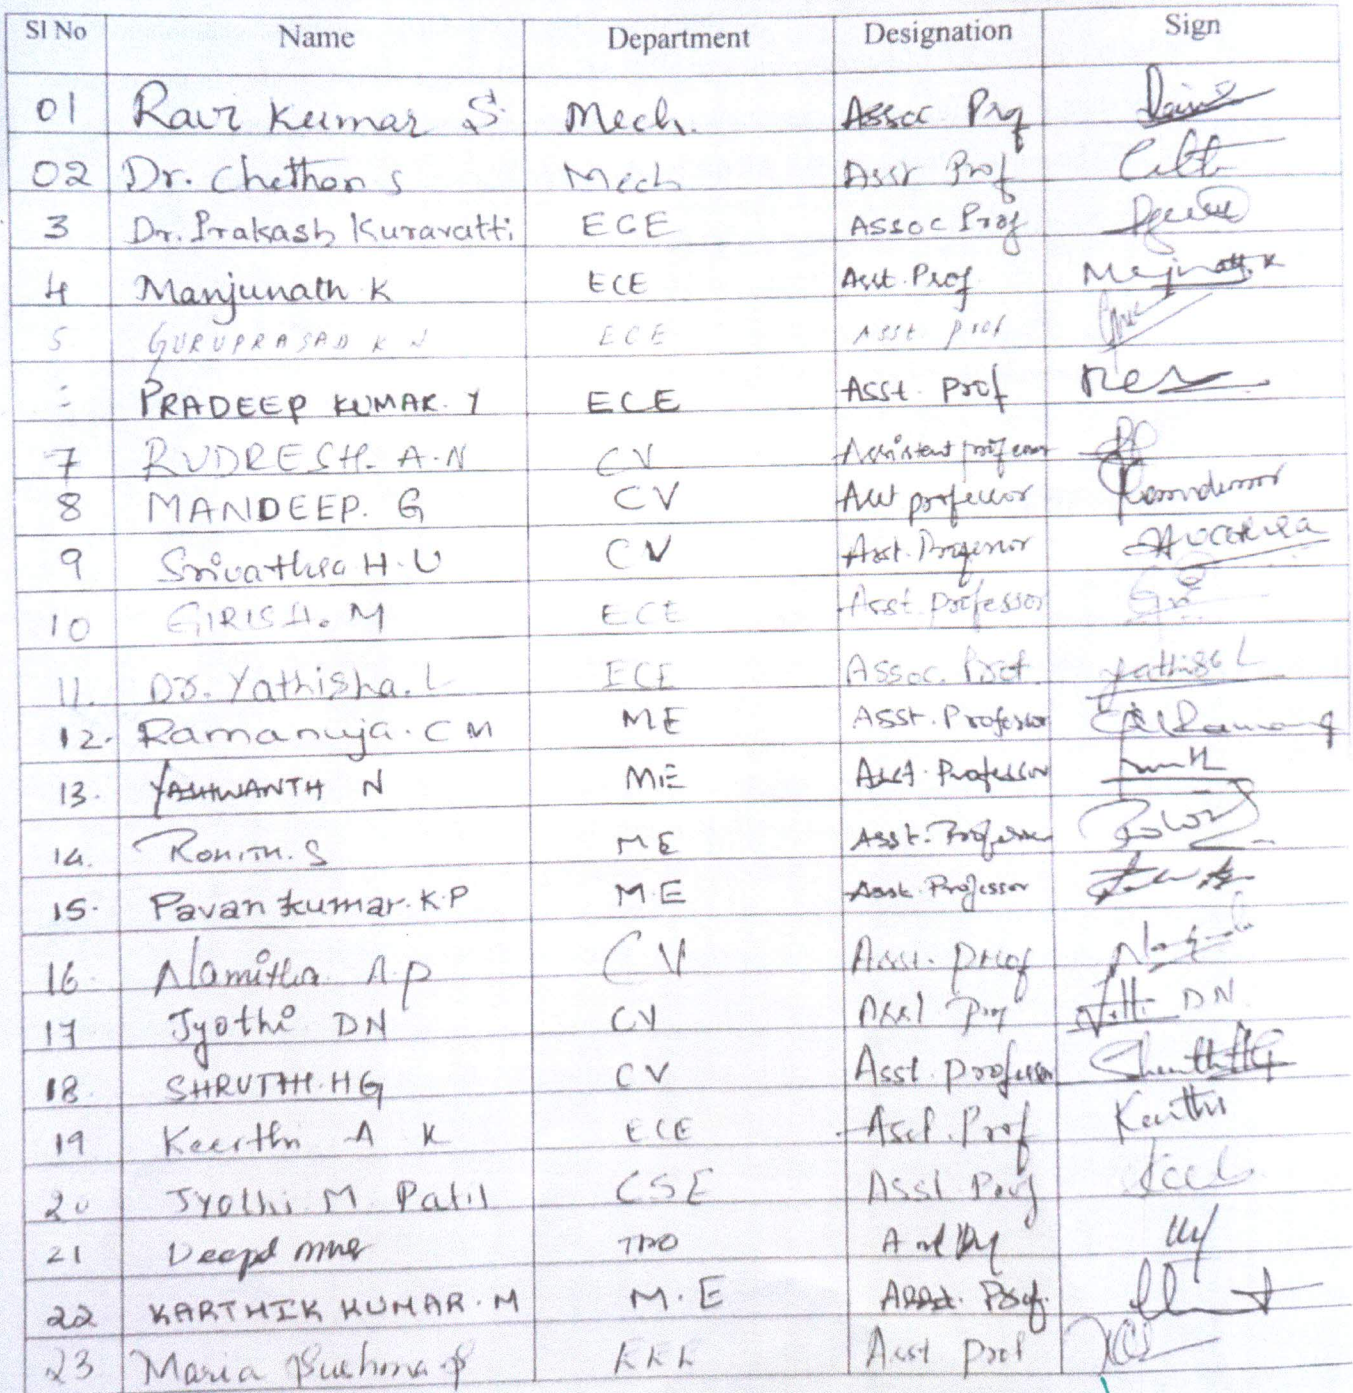 Sl No Name Department Designation Sign
01 Ravi Kumar S Mech. Assoc. Prf
02 Dr. Chethan S Mech Asst Prof
3 Dr. Prakash Kuravatti ECE Assoc Prof
4 Manjunath K ECE Asst. Prof Manjunath. K
5 GURUPRASAD K N ECE Asst. prof
PRADEEP KUMAR. Y ECE Asst. prof
7 RUDRESH. A.N CV Assistant professor
8 MANDEEP. G CV Asst professor
9 Srivathsa H.U CV Asst. Professor
10 GIRISH. M ECE Asst. professor
11. Dr. Yathisha. L ECE Assoc. Prof. Yathisha L
12. Ramanuja. C M ME Asst. Professor
13. YASHWANTH N ME Asst. Professor
14. Rohith. S ME Asst. Professor
15. Pavan Kumar. K.P M.E Asst. Professor
16. Namitha A.P CV Asst. Prof
17 Jyothi DN CV Asst Prof DN
18. SHRUTHI. HG CV Asst. professor Shruthi HG
19 Keerthi A K ECE Asst. Prof Keerthi
20 Jyothi M Patil CSE Asst Prof
21
22 KARTHIK KUMAR. M M.E Asst. Prof.
23 Maria Sushma S EEE Asst Prof